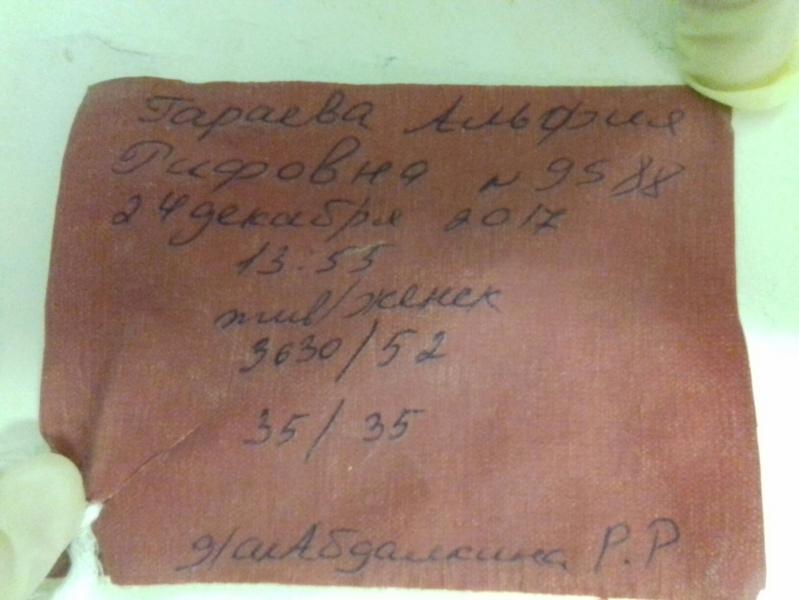 Гараева Альфия
Рифовна N 9588
24 декабря 2017
13:55
жив/женск
3630/52
35/35
Абдалкина Р.Р